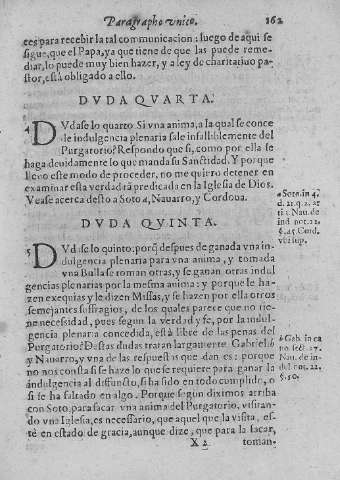 Paragrapho vnico. 162
ces para recebir la tal communicacion: luego de aqui se
sigue, que el Papa, ya que tiene de que las puede reme-
diar, lo puede muy bien hazer, y a ley de charitatiuo pa-
stor, està obligado a ello.
DVDA QVARTA.
DVdase lo quarto Si vna anima, a la qual se conce
de indulgencia plenaria sale infaliblemente del
Purgatorio? Respondo que si, como por ella se
haga deuidamente lo que manda su Sanctidad. Y porque
lleuo este modo de proceder, no me quiero detener en
examinar esta verdad tã predicada en la Iglesia de Dios.
Vease acerca desto a Soto a, Nauarro, y Cordoua.
a Soto. in 4.
d. 21. q. 2. ar
ti. Nau. de
ind not. 22.
§. 45 Cord.
vbi sup.
DVDA QVINTA.
DVdase lo quinto: porq̃ despues de ganada vna in-
dulgencia plenaria para vna anima, y tomada
vna Bulla se toman otras, y se ganan otras indul
gencias plenarias por la mesma anima: y porque le ha-
zen exequias y le dizen Missas, y se hazen por ella otros
semejantes suffragios, de los quales parece que no tie-
ne necesidad, pues segun la verdad y fe, por la indul-
gencia plenaria concedida, està libre de las penas del
Purgatorio? Destas dudas tratan largamente Gabriel b
y Nauarro, y vna de las respuestas que dan es: porque
no nos consta si se haze lo que se requiere para ganar la
indulgencia al diffuncto, si ha sido en todo cumplido, o
si se ha faltado en algo. Porque segun diximos arriba
con Soto, para sacar vna anima del Purgatorio, visitan-
do vna Iglesia, es necessario, que aquel que la visita, es-
tè en estado de gracia, aunque dize, que para la sacar,
b Gab. in ca
no. lect. 57.
Nau. de in-
dul not. 22.
§. 50.
X 2 toman-